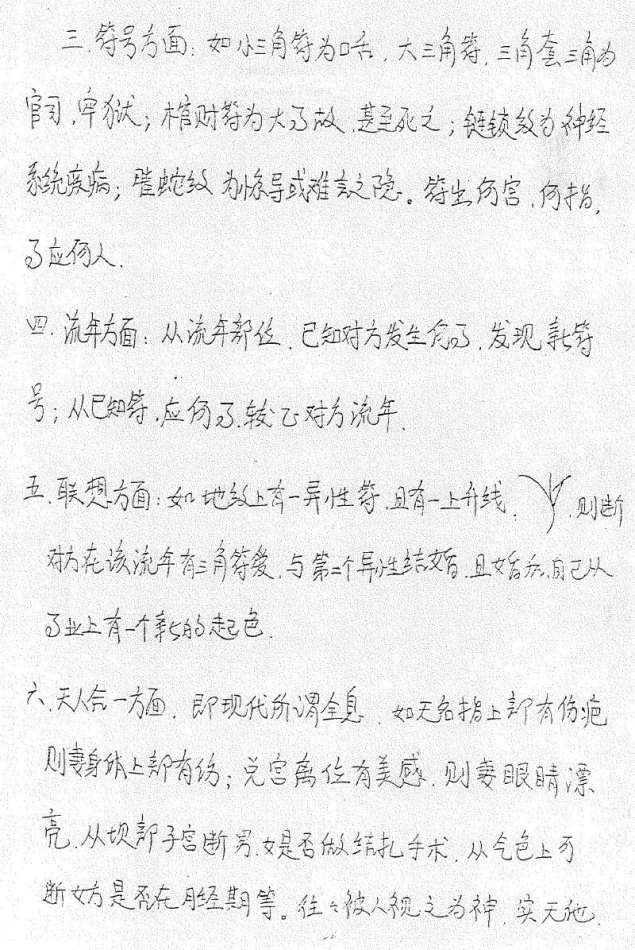 三.符号方面：如小三角符为口舌，大三角符，三角套三角为
官司，牢狱；棺财符为大事故，甚至死亡；链锁纹为神经
系统疾病；蛇纹为难言之隐。符出何宫，何指，
事应何人.
四.流年方面：从流年部位，已知对方发生何事，发现新符
号；从已知符，应何事，较正对方流年.
五.联想方面：如地纹上有一异性符，且有一上升线，则断
对方在该流年有三角符爱，与第二个异性结婚，且婚后自己从
事业上有一个新的起色.
六、天人合一方面，即现代所谓全息，如无名指上部有伤疤
则妻身体上部有伤；兑宫离位有美感，则妻眼睛漂
亮，从坝部子宫断男.女是否做结扎手术，从气色上可
断女方是否在月经期等。往往被人视之为神，实无他.